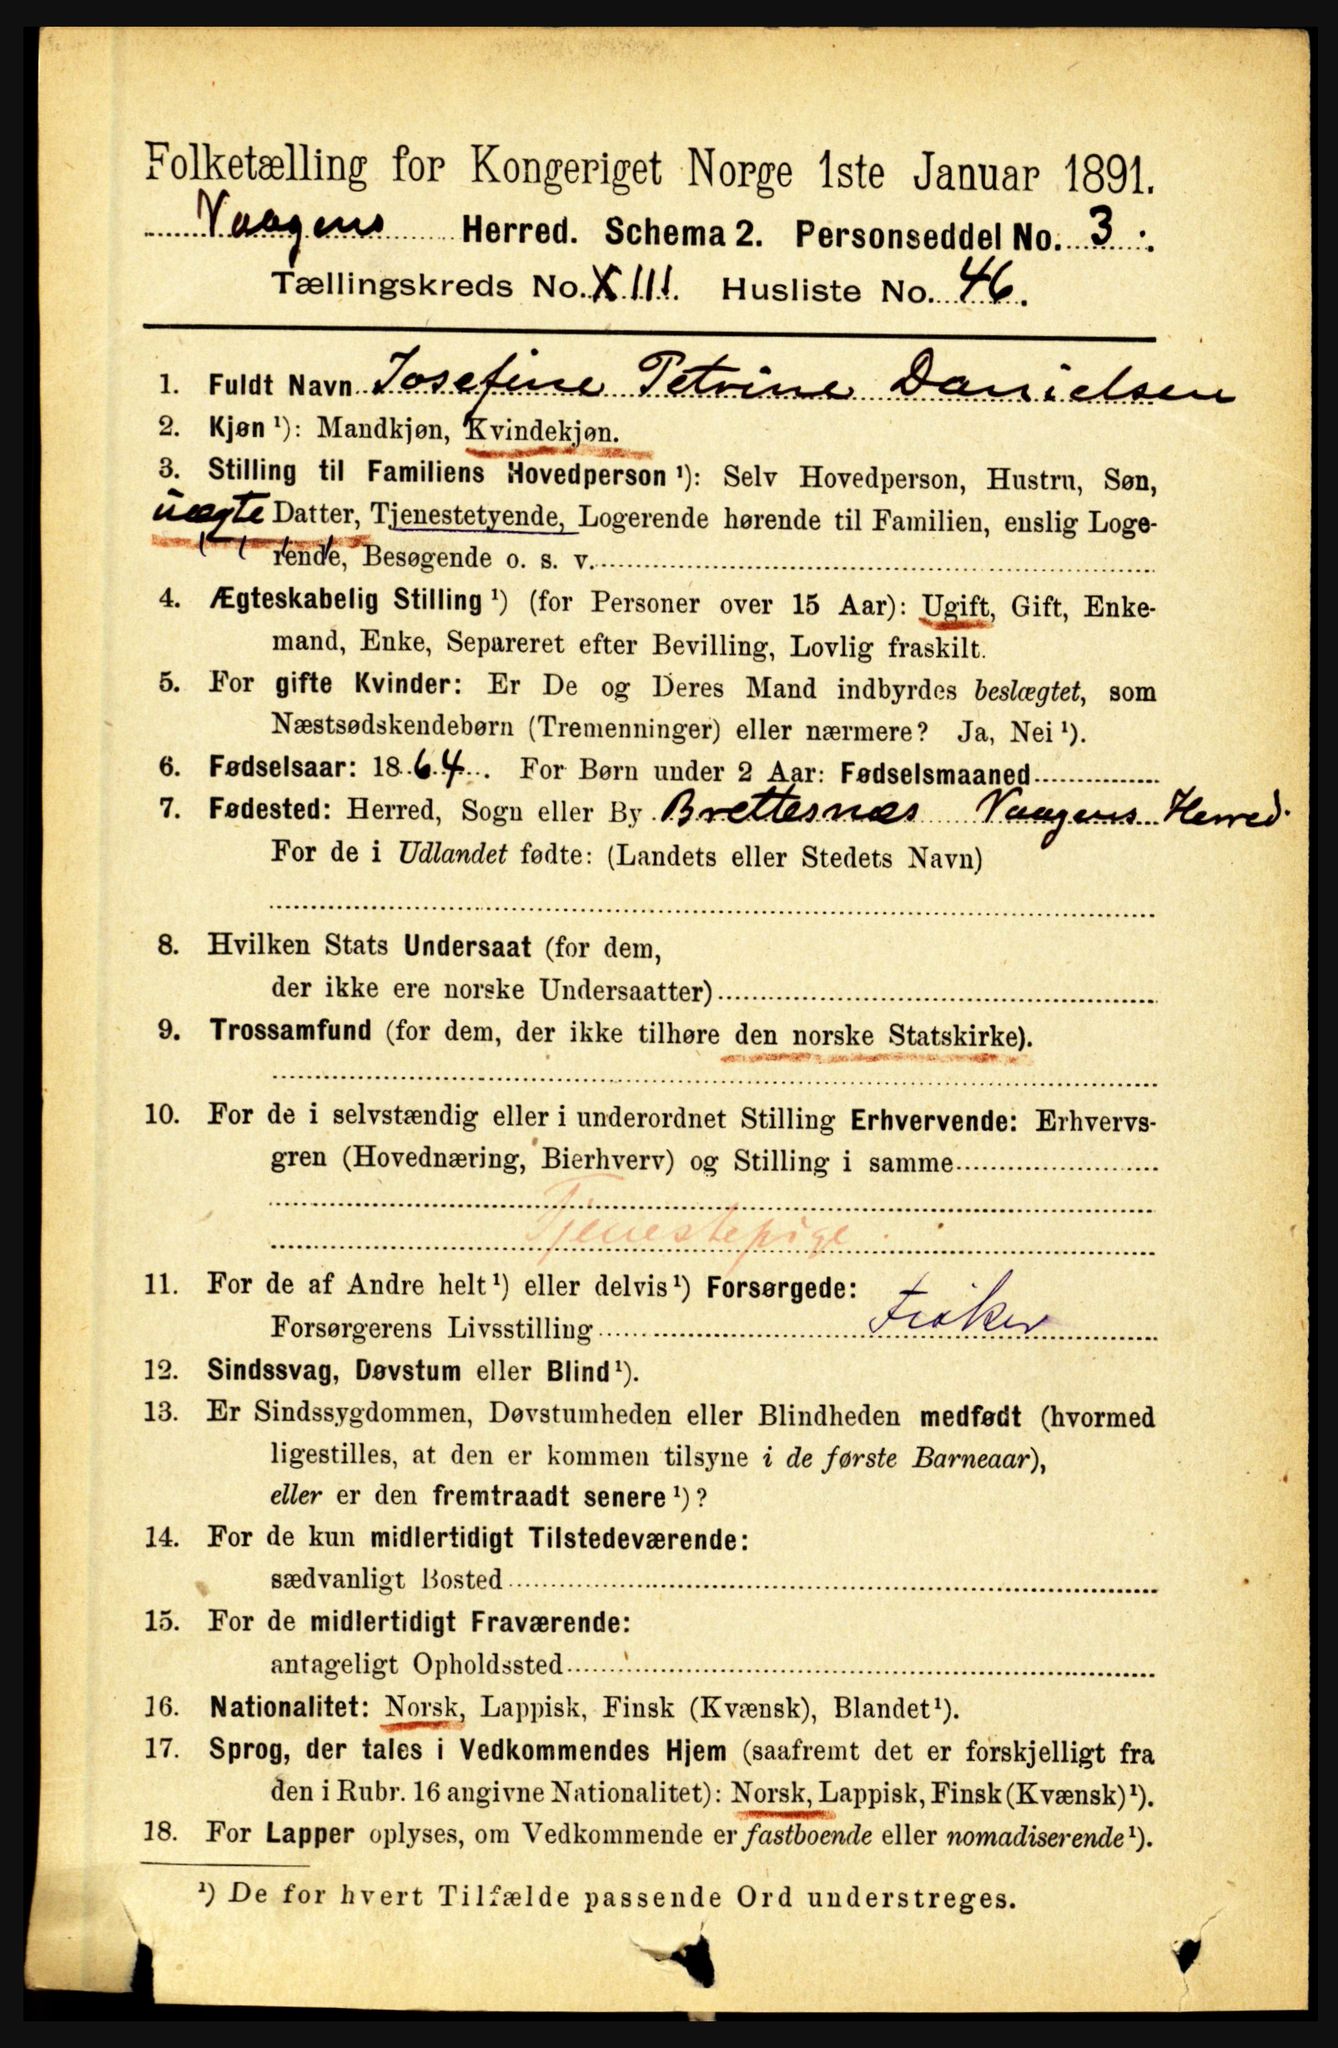 Folketælling for Kongeriget Norge 1ste Januar 1891.
Vaagens Herred. Schema 2. Personseddel No. 3.
Tællingskreds No. XIII. Husliste No. 46.
1. Fuldt Navn Josefine Petrine Danielsen
2. Kjøn ¹): Mandkjøn, Kvindekjøn.
3. Stilling til Familiens Hovedperson ¹): Selv Hovedperson, Hustru, Søn,
uægte Datter, Tjenestetyende, Logerende hørende til Familien, enslig Loge-
rende, Besøgende o. s. v.
4. Ægteskabelig Stilling ¹) (for Personer over 15 Aar): Ugift, Gift, Enke-
mand, Enke, Separeret efter Bevilling, Lovlig fraskilt.
5. For gifte Kvinder: Er De og Deres Mand indbyrdes beslægtet, som
Næstsødskendebørn (Tremenninger) eller nærmere? Ja, Nei ¹).
6. Fødselsaar: 1864. For Børn under 2 Aar: Fødselsmaaned
7. Fødested: Herred, Sogn eller By Brettesnæs Vaagens Herred.
For de i Udlandet fødte: (Landets eller Stedets Navn)
8. Hvilken Stats Undersaat (for dem,
der ikke ere norske Undersaatter)
9. Trossamfund (for dem, der ikke tilhøre den norske Statskirke).
10. For de i selvstændig eller i underordnet Stilling Erhvervende: Erhvervs-
gren (Hovednæring, Bierhverv) og Stilling i samme
Tjenestepige
11. For de af Andre helt ¹) eller delvis ¹) Forsørgede:
Forsørgerens Livsstilling Fisker
12. Sindssvag, Døvstum eller Blind ¹).
13. Er Sindssygdommen, Døvstumheden eller Blindheden medfødt (hvormed
ligestilles, at den er kommen tilsyne i de første Barneaar),
eller er den fremtraadt senere ¹)?
14. For de kun midlertidigt Tilstedeværende:
sædvanligt Bosted
15. For de midlertidigt Fraværende:
antageligt Opholdssted
16. Nationalitet: Norsk, Lappisk, Finsk (Kvænsk), Blandet ¹).
17. Sprog, der tales i Vedkommendes Hjem (saafremt det er forskjelligt fra
den i Rubr. 16 angivne Nationalitet): Norsk, Lappisk, Finsk (Kvænsk) ¹).
18. For Lapper oplyses, om Vedkommende er fastboende eller nomadiserende ¹).
¹) De for hvert Tilfælde passende Ord understreges.